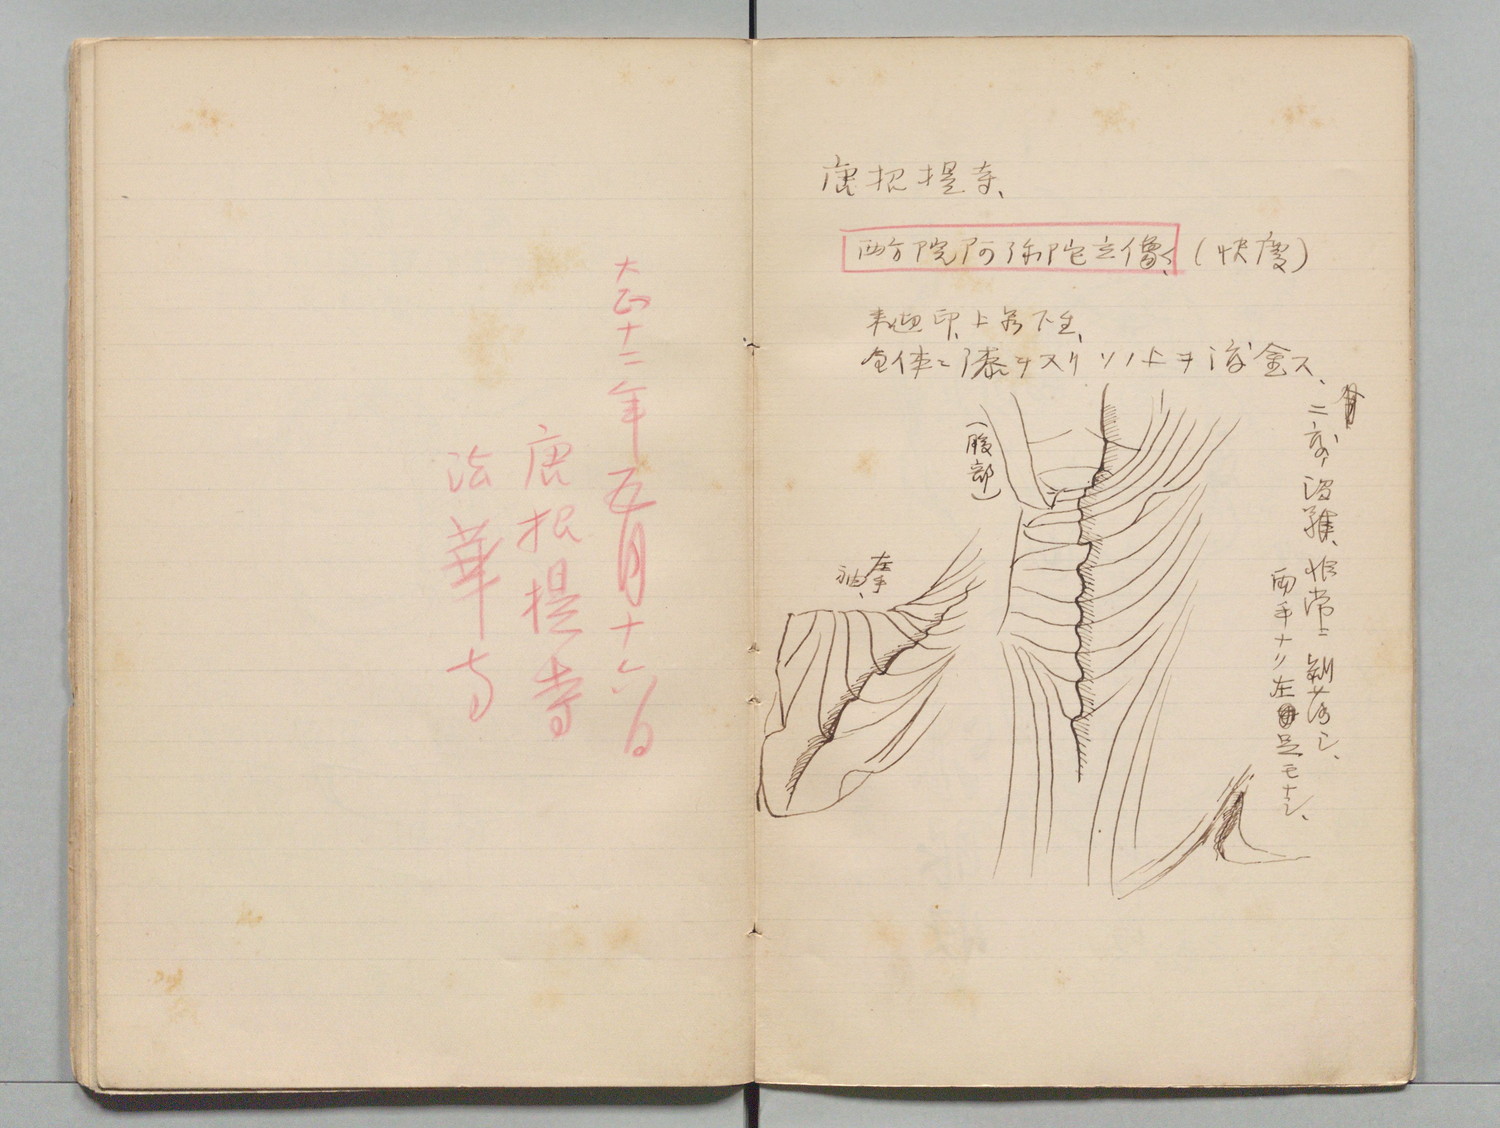 大正十二年五月十六日
唐招提寺
法華寺
唐招提寺、
西方院阿弥陀立像、(快慶)
来迎印、上品下生、
全体ニ漆ヲヌリソノ上ヲ渡金ス、
(腹部)
左手
袖、
盗難、非常ニ剥落シ、
両手ナ 左足モナシ、